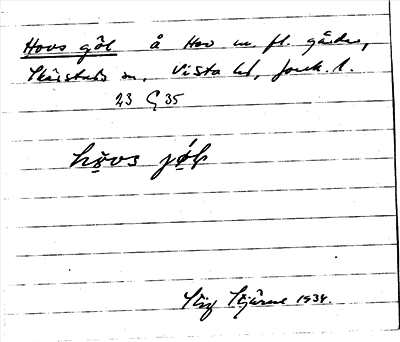 Hovs göl å Hov m. fl. gårdar,
Skärstads sn, Vista hd, Jönk. l.
23 G 35
hovs jøl
Stig Stjärne 1934.